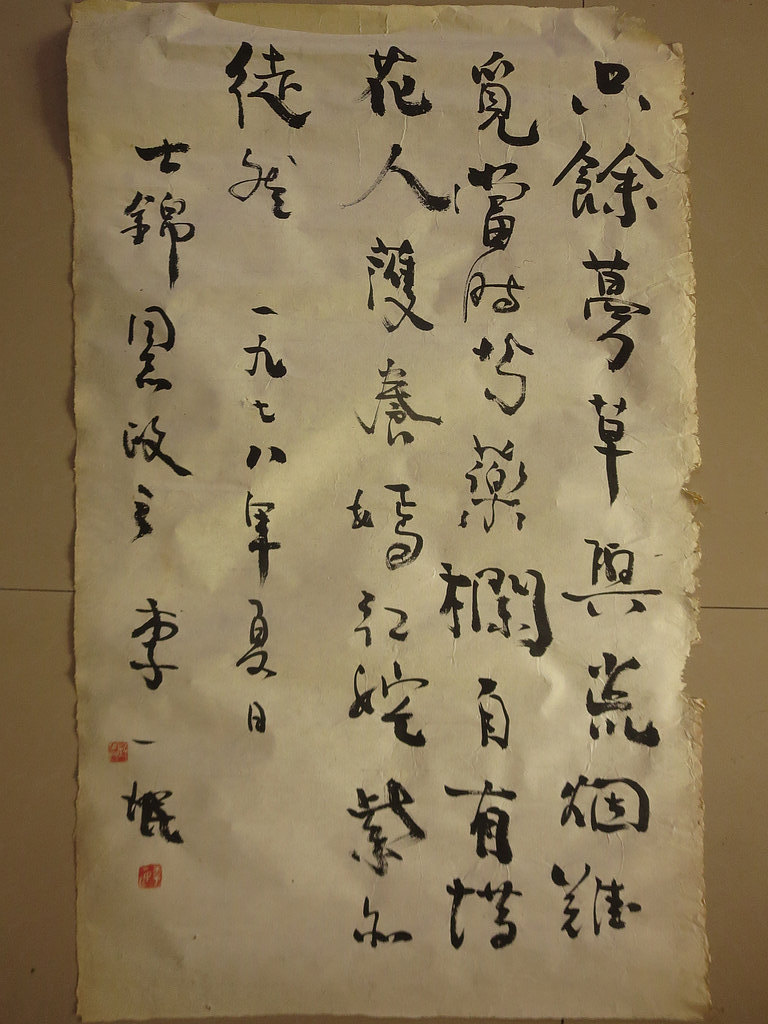 只餘蔓草與荒烟難
覓當时芍藥欄自有惜
花人護養嫣红姹紫不
徒然 一九七八年夏日
士錦同志政之 李一氓